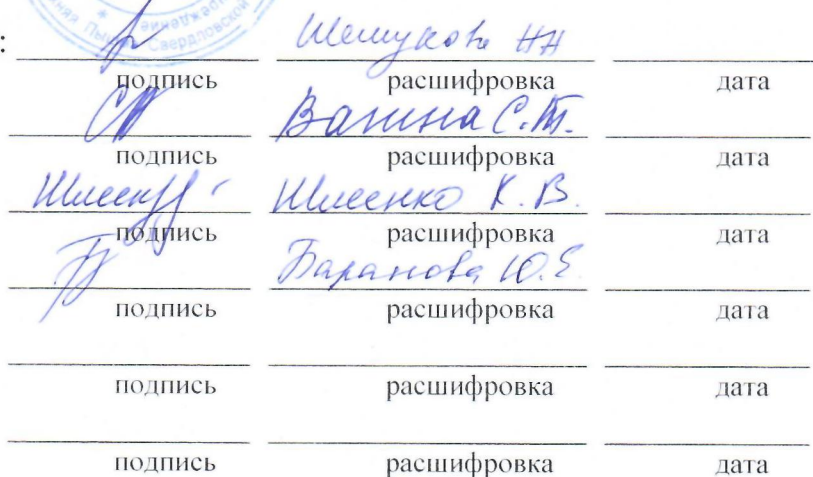 няя Пыш Свердловской
: Шемукова НН
подпись расшифровка дата
Ванина С.Т.
подпись расшифровка дата
К.В.
подпись расшифровка дата
Баранова Ю.Е.
подпись расшифровка дата
подпись расшифровка дата
подпись расшифровка дата